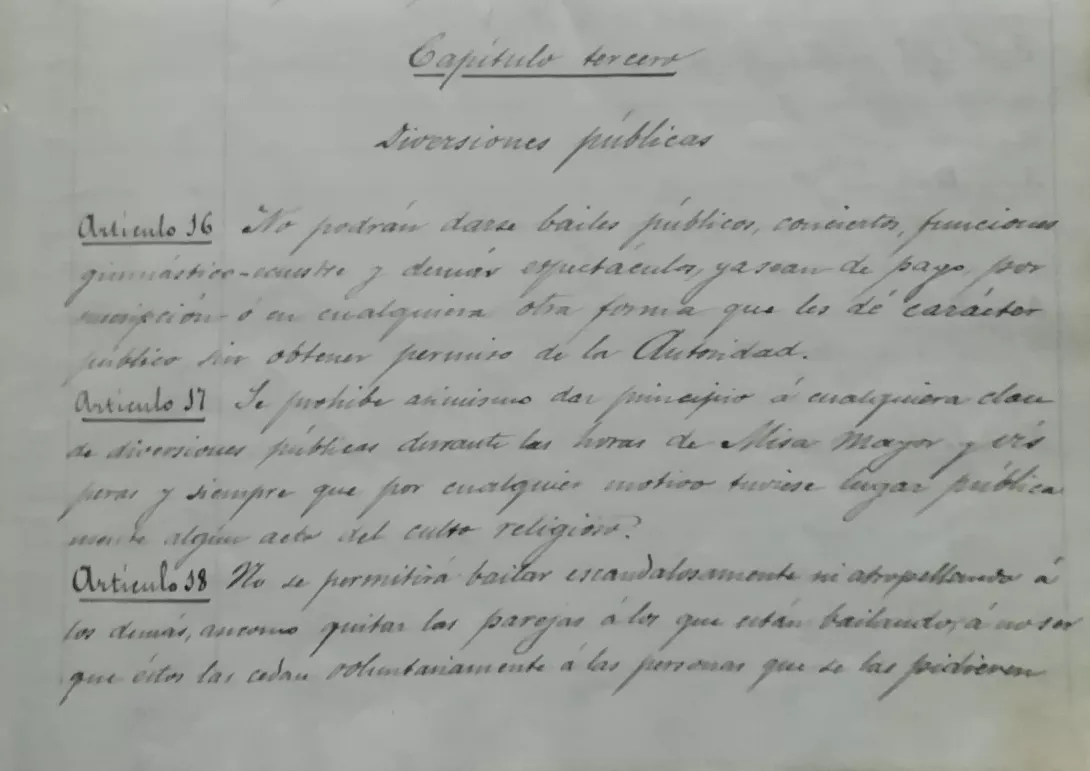 Capítulo tercero
Diversiones públicas
Artículo 16 No podrán darse bailes públicos, conciertos, funciones
gimnástico-ecuestre y demás espectáculos, ya sean de pago, por
suscripción ó en cualquiera otra forma que les dé carácter
público sin obtener permiso de la Autoridad.
Artículo 17 Se prohibe asimismo dar principio á cualquiera clase
de diversiones públicas durante las horas de Misa Mayor y vís
peras y siempre que por cualquier motivo tuviese lugar pública
mente algún acto del culto religioso.
Artículo 18 No se permitirá bailar escandalosamente ni atropellando á
los demás, asicomo quitar las parejas á los que están bailando, á no ser
que éstos las cedan voluntariamente á las personas que se las pidieren